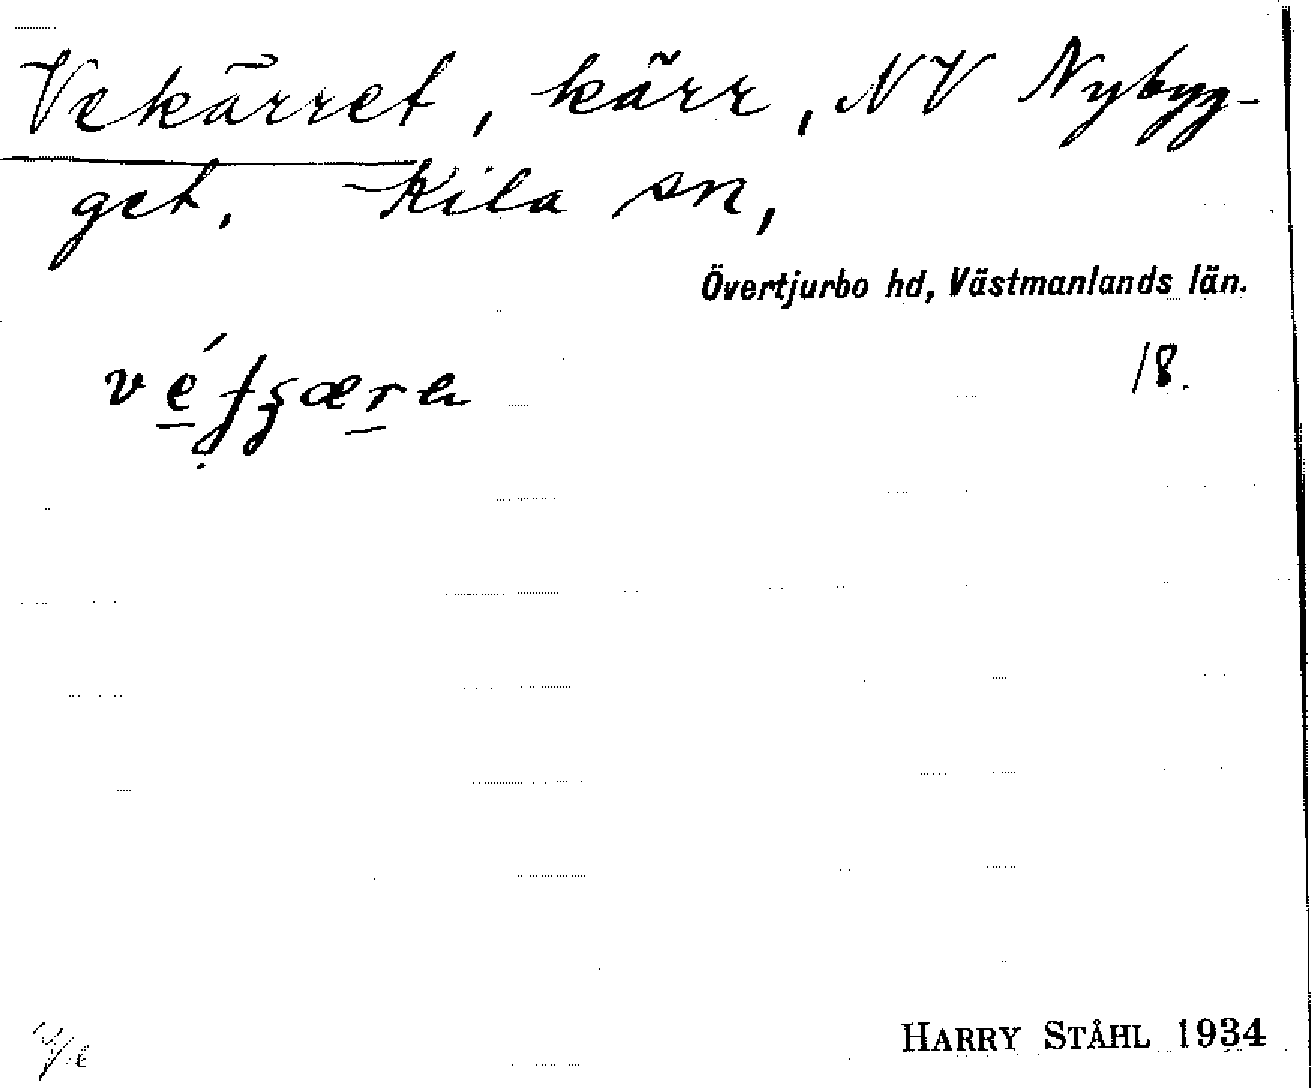 Vekärret, kärr, NV Nybyg-
get, Kila sn,
Övertjurbo hd, Västmanlands län.
18.
HARRY STÅHL 1934